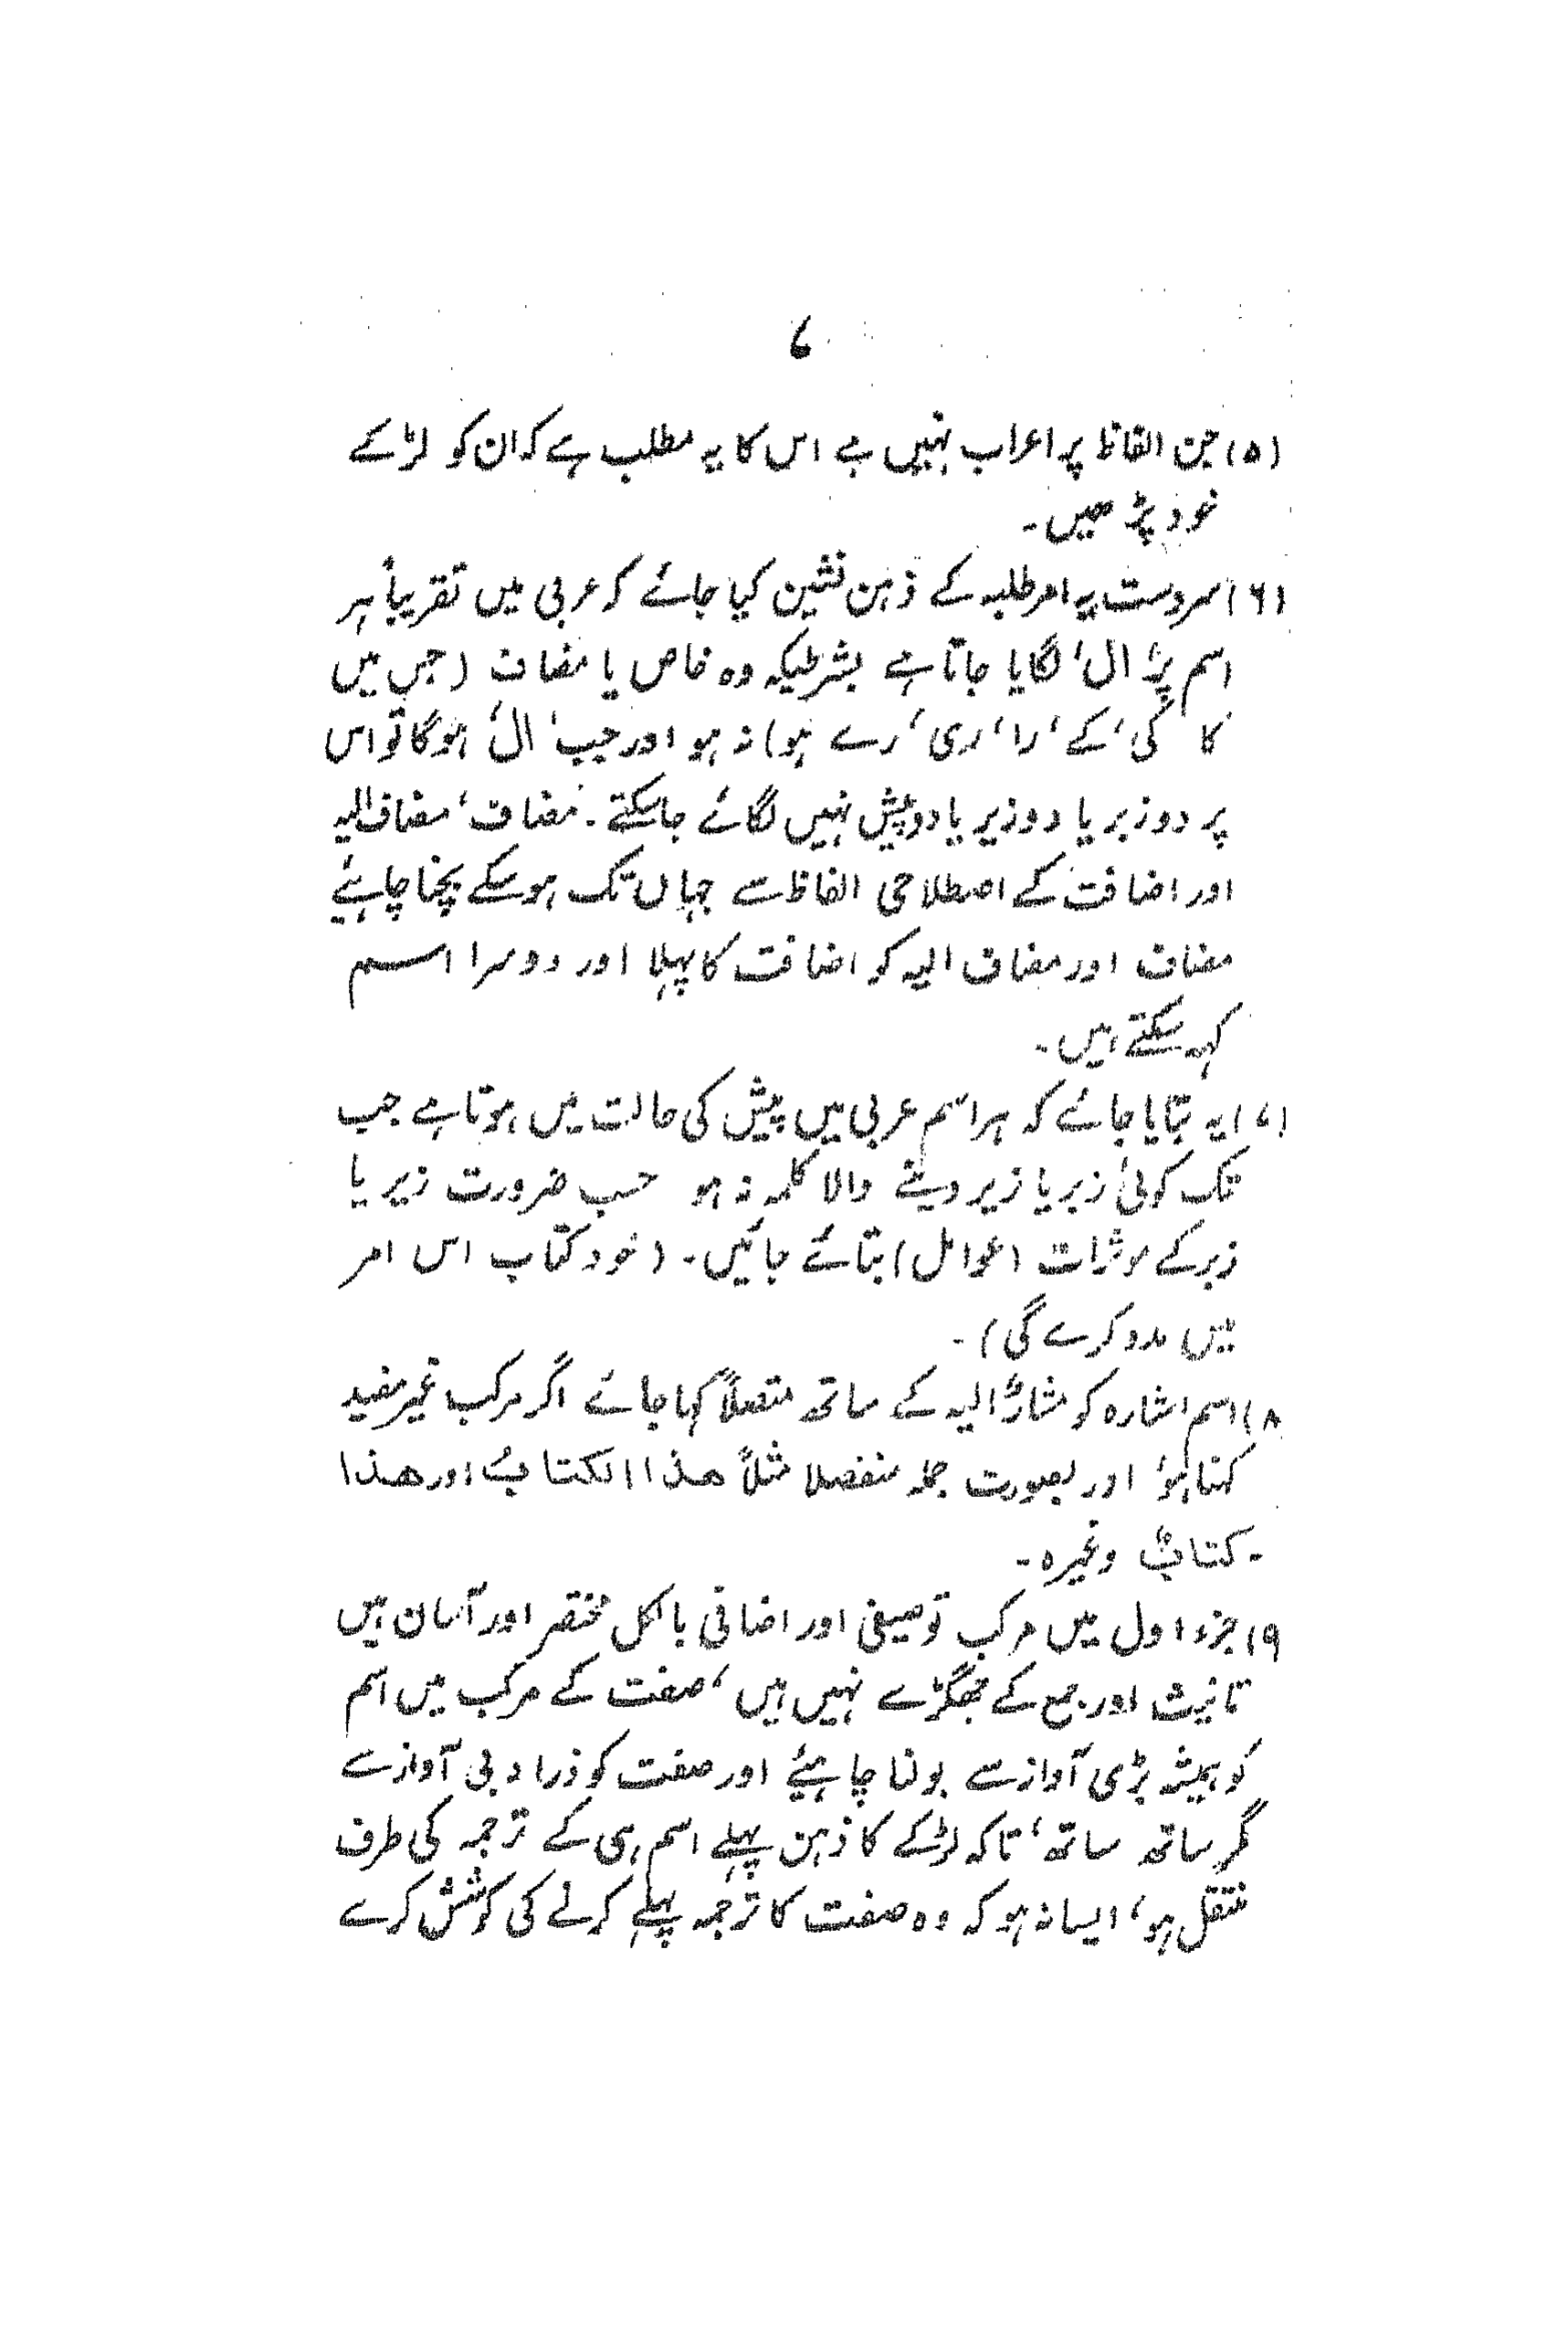 ۷
(۵) جن الفاظ پر اعراب نہیں ہے اس کا یہ مطلب ہے کہ ان کو لڑکے
خود پڑھیں۔
(۶) سردست یہ امر طلبہ کے ذہن نشین کیا جائے کہ عربی میں تقریباً ہر
اسم پر ’ال‘ لگایا جاتا ہے بشرطیکہ وہ خاص یا مضاف (جس میں
کا ‘ کی ‘ کے ‘ را ‘ ری ‘ رے ہو) نہ ہو اور جب ’ال‘ ہوگا تو اس
پر دو زبر یا دو زیر یا دو پیش نہیں لگائے جاسکتے۔ مضاف ‘ مضاف الیہ
اور اضافت کے اصطلاحی الفاظ سے جہاں تک ہوسکے بچنا چاہئے
مضاف اور مضاف الیہ کو اضافت کا پہلا اور دوسرا اسم
کہہ سکتے ہیں۔
(۷) یہ بتایا جائے کہ ہر اسم عربی میں پیش کی حالت میں ہوتا ہے جب
تک کوئی زبر یا زیر دینے والا کلمہ نہ ہو حسب ضرورت زیر یا
زبر کے موثرات (عوامل) بتائے جائیں۔ (خود کتاب اس امر
میں مدد کرے گی)۔
۸) اسم اشارہ کو مشارٌ الیہ کے ساتھ متصلاً کہا جائے اگر مرکب غیر مفید
کہنا ہو ‘ اور بصورت جملہ منفصلا مثلاً ھذا الکتابُ اور ھذا
۔ کتابٌ وغیرہ۔
۹) جزء اول میں مرکب توصیفی اور اضافی بالکل مختصر اور آسان ہیں
تانیث اور جمع کے جھگڑے نہیں ہیں ‘ صفت کے مرکب میں اسم
کو ہمیشہ بڑی آواز سے بولنا چاہئے اور صفت کو ذرا دبی آواز سے
مگر ساتھ ساتھ ‘ تاکہ لڑکے کا ذہن پہلے اسم ہی کے ترجمہ کی طرف
منتقل ہو ‘ ایسا نہ ہو کہ وہ صفت کا ترجمہ پہلے کرنے کی کوشش کرے